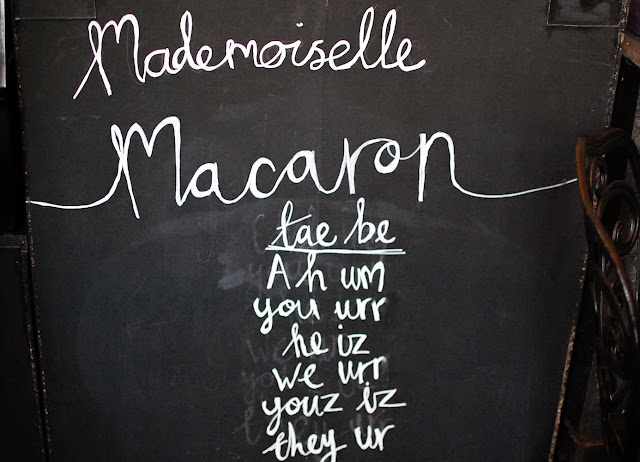 Mademoiselle
Macaron
tae be
Ah um
you urr
he iz
we urr
youz iz
they ur